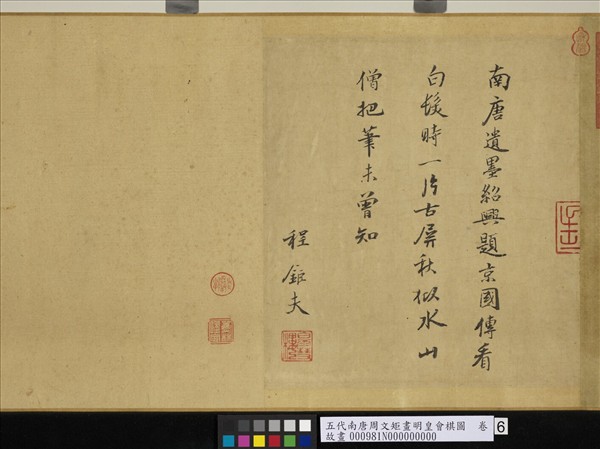 南唐遺墨紹興題京國傳看
白髮時一片古屏秋似水山
僧把筆未曾知
程鉅夫
五代南唐周文矩畫明皇會棋圖 卷
故畫000981N000000000
6